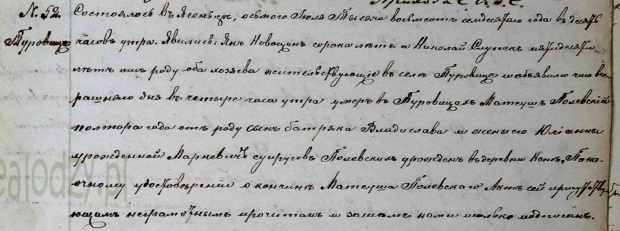 N. 52.
Туровицъ
Состоялось въ Ясенцѣ, седмаго Юля Тысяча восемьсотъ семдесятаго года въ десять
часовъ утра. Явились: Янъ Новоцинъ сорока лѣтъ и Николай пятьдесяти
лѣтъ отъ роду оба хозяева жительствующіе въ селѣ Туровицѣ и объявили что вче-
рашняго дня въ четыре часа утра умеръ въ Туровицахъ Матеушъ Полевскій
полтора года отъ роду сынъ батрака Владислава и жены его Юліанны
урожденной супруговъ Полевскихъ урожденъ въ деревни По на-
очному удостовереніи о кончинѣ Матеуша Полевскаго Актъ сей присутству-
ющимъ неграмотнымъ прочитанъ и затемъ нами только подписанъ.